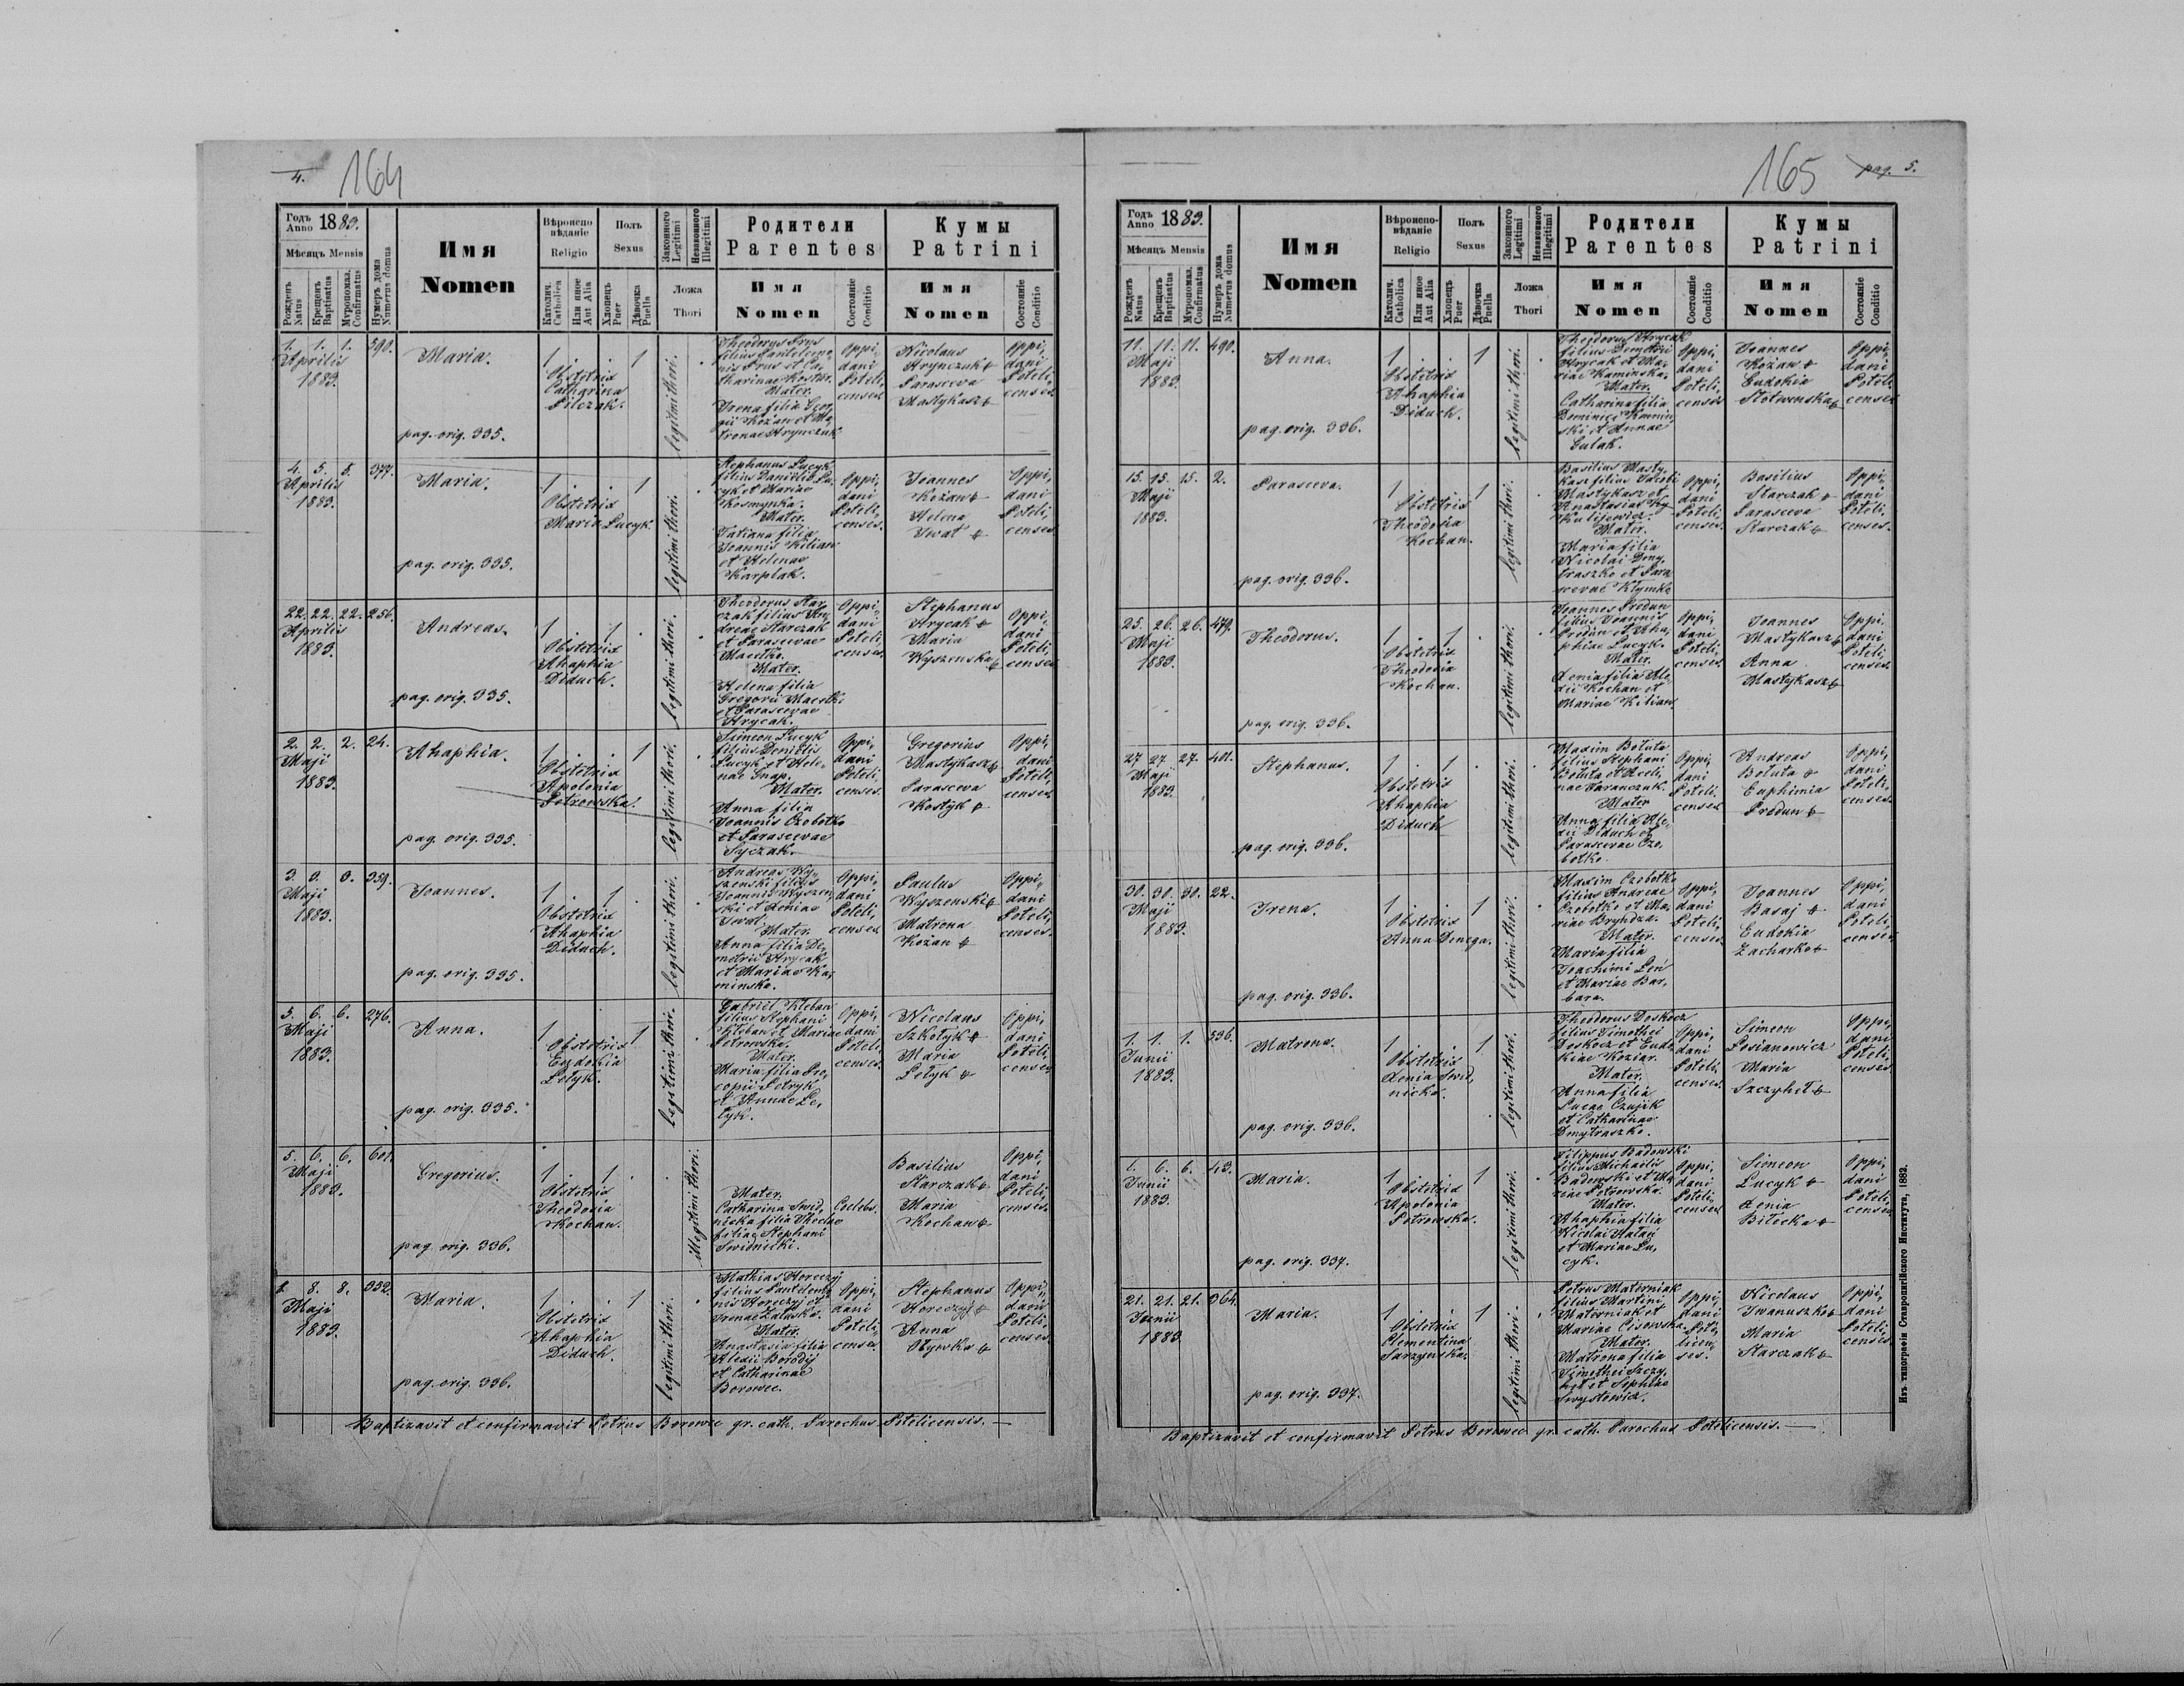 4.
164
Годъ Anno 1883.
Мѣсяцъ Mensis
Рожденъ Natus
Крещенъ Baptisatus
Мѵропомаз. Confirmatus
Нумеръ дома Numerus domus
Имя
Nomen
Вѣроиспо
вѣданіе
Religio
Католич. Catholica
Или иное Aut Alia
Полъ
Sexus
Хлопець Puer
Дѣвочка Puella
Законного Legitimi
Незаконного Illegitimi
Ложа
Thori
Родители
Parentes
Имя
Nomen
Состояніе Conditio
Кумы
Patrini
Имя
Nomen
Состояніе Conditio
1. 1. 1. 590.
Aprilis
1883.
Maria.
pag. orig. 335.
1 . . 1
Obstetrix
Catharina
Pilczak.
legitimi thori.
Theodorus Prus
filius Pantelemo
nis Prus et Ca,
tharinae Kostur.
Mater.
Irena filia Geor
gii Kożan et Ma,
tronae Hrynczuk
Oppi,
dani
Poteli,
censes
Nicolaus
Hrynczuk +
Parasceva
Mastykasz +
Oppi,
dani
Poteli,
censes
4. 5. 5. 377.
Aprilis
1883.
Maria.
pag. orig. 335.
1 . . 1
Obstetrix
Maria Lucyk.
legitimi thori.
Stephanus Lucyk
filius Danielis Lu,
cyk et Mariae
Kosmynka.
Mater.
Tatiana filia
Joannis Kilian
et Helenae
Karplak.
Oppi,
dani
Poteli,
censes.
Joannes
Kożan +
Helena
Iwat +
Oppi,
dani
Poteli,
censes.
22. 22. 22. 256.
Aprilis
1883.
Andreas.
pag. orig. 335.
1 . 1 .
Obstetrix
Ahaphia
Diduch.
legitimi thori.
Theodorus Star
czak filius An,
dreae Starczak
et Parascevae
Macetko.
Mater.
Helena filia
Gregorii Macetki
et Parascevae
Hrycak.
Oppi,
dani
Poteli,
censes.
Stephanus
Hrycak +
Maria
Wyszenska +
Oppi,
dani
Poteli,
censes
2. 2. 2. 24.
Maji
1883.
Ahaphia.
pag. orig. 335.
1 . . 1
Obstetrix
Apolonia
Petrowska.
legitimi thori.
Simeon Lucyk
filius Danielis
Lucyk et Hele,
nae Gnap.
Mater.
Anna filia
Joannis Ozobotko
et Parascevae
Syczak.
Oppi,
dani
Poteli,
censes.
Gregorius
Mastykasz +
Parasceva
Kostyk +
Oppi,
dani
Poteli,
censes.
3. 3. 3. 359.
Maji
1883.
Joannes.
pag. orig. 335.
1 . 1 .
Obstetrix
Ahaphia
Diduch.
legitimi thori.
Andreas Wy,
szenski filius
Joannis Wyszen
ski et Xeniae
Iwat.
Mater.
Anna filia De,
metrii Hrycak
et Mariae Ka,
minska.
Oppi,
dani
Poteli,
censes.
Paulus
Wyszenski +
Matrona
Kożan +
Oppi,
dani
Poteli,
censes.
5. 6. 6. 276.
Maji
1883.
Anna.
pag. orig. 335.
1 . . 1
Obstetrix
Eudokia
Lotyk.
legitimi thori.
Gabriel Kleban
filius Stephani
Kleban et Mariae
Petrowska.
Mater.
Maria filia Pro,
copii Petryk
et Annae Le,
tyk.
Oppi,
dani
Poteli,
censes.
Nicolaus
Szkolyk +
Maria
Letyk +
Oppi,
dani
Poteli,
censes
5. 6. 6. 601.
Maji
1883.
Gregorius.
pag. orig. 336.
1 . 1 .
Obstetrix
Theodosia
Kochan.
illegitimi thori.
Mater.
Catharina Swid,
nicka filia Theclae
filiae Stephani
Swidnicki.
Coelebs.
Basilius
Starczak +
Maria
Kochan +
Oppi,
dani
Poteli,
censes.
8. 8. 8. 352.
Maji
1883.
Maria.
pag. orig. 336.
1 . . 1
Obstetrix
Ahaphia
Diduch.
legitimi thori.
Mathias Horeczyj
filius Pantelemo
nis Horeczyj et
Irenae Załuska.
Mater.
Anastasia filia
Alexii Borodij
et Catharinae
Borowec.
Oppi,
dani
Poteli,
censes
Stephanus
Horeczyj +
Anna
Obywka +
Oppi,
dani
Poteli,
censes
Baptizavit et confirmavit Petrus Borowec gr. cath. Parochus Potelicensis.
165
pag. 5.
Годъ Anno 1883.
Мѣсяцъ Mensis
Рожденъ Natus
Крещенъ Baptisatus
Мѵропомаз. Confirmatus
Нумеръ дома Numerus domus
Имя
Nomen
Вѣроиспо-
вѣданіе
Religio
Католич. Catholica
Или иное Aut Alia
Полъ
Sexus
Хлопець Puer
Дѣвочка Puella
Законного Legitimi
Незаконного Illegitimi
Ложа
Thori
Родители
Parentes
Имя
Nomen
Состояніе Conditio
Кумы
Patrini
Имя
Nomen
Состояніе Conditio
11. 11. 11. 490.
Maji
1883.
Anna.
pag. orig. 336.
1 . . 1
Obstetrix
Ahaphia
Diduch.
legitimi thori.
Theodorus Hrycak
filius Demetrii
Hrycak et Ma,
riae Kaminska.
Mater.
Catharina filia
Dominici Kamin,
ski et Annae
Gulak.
Oppi,
dani
Poteli,
censes
Joannes
Kożan +
Eudokia
Slotwenska +
Oppi,
dani
Poteli,
censes
15. 15. 15. 2.
Maji
1883.
Parasceva.
pag. orig. 336.
1 . . 1
Obstetrix
Theodosia
Kochan.
legitimi thori.
Basilius Masty,
kasz filius Jacobi
Mastykasz et
Anastasiae Ky
Kulijewicz.
Mater.
Maria filia
Nicolai Dmy,
traszko et Para
scevae Klymko
Oppi,
dani
Poteli,
censes.
Basilius
Starczak +
Parasceva
Starczak +
Oppi,
dani
Poteli,
censes.
25. 26. 26. 479.
Maji
1883.
Theodorus.
pag. orig. 336.
1 . 1 .
Obstetrix
Theodosia
Kochan.
legitimi thori.
Joannes Predun
filius Joannis
Predun et Aha,
phiae Lucyk.
Mater.
Xenia filia Ale,
xii Kochan et
Mariae Kilian.
Oppi,
dani
Poteli,
censes.
Joannes
Mastykasz +
Anna
Mastykasz +
Oppi,
dani
Poteli,
censes
27. 27. 27. 401.
Maji
1883.
Stephanus.
pag. orig. 336.
1 . 1 .
Obstetrix
Ahaphia
Diduch
legitimi thori.
Maxim Boluta
filius Stephani
Boluta et Aceli,
nae Taranczuk.
Mater
Anna filia Ale,
xii Diduch et
Parascevae Ozo,
botko.
Oppi,
dani
Poteli,
censes
Andreas
Boluta +
Euphimia
Predun +
Oppi,
dani
Poteli,
censes.
30. 30. 30. 22.
Maji
1883.
Irena.
pag. orig. 336.
1 . . 1
Obstetrix
Anna Denega.
legitimi thori.
Maxim Ozobotko
filius Andreae
Ozobotko et Ma,
riae Bryndza.
Mater.
Maria filia
Joachimi Leń
et Mariae Bar,
bara.
Oppi,
dani
Poteli,
censes.
Joannes
Basaj +
Eudokia
Zacharko +
Oppi,
dani
Poteli,
censes
1. 1. 1. 536.
Junii
1883.
Matrona.
pag. orig. 336.
1 . . 1
Obstetrix
Xenia Swid,
nicka.
legitimi thori.
Theodorus Doskocz
filius Timothei
Doskocz et Eudo,
kiae Koziar.
Mater.
Anna filia
Lucae Czujik
et Catharinae
Dmytraszko.
Oppi,
dani
Poteli,
censes.
Simeon
Losianowicz
Maria
Szczyhel +
Oppi,
dani
Poteli,
censes
1. 6. 6. 43.
Junii
1883.
Maria.
pag. orig. 337.
1 . . 1
Obstetrix
Apolonia
Petrowska.
legitimi thori.
Filippus Badowski
filius Michaelis
Badowski et Ma,
riae Petrowska.
Mater.
Ahaphia filia
Nicolai Hałaij
et Mariae Lu,
cyk.
Oppi,
dani
Poteli,
censes
Simeon
Lucyk +
Xenia
Bilecka +
Oppi,
dani
Poteli,
censes
21. 21. 21. 364.
Junii
1883.
Maria.
pag. orig. 337.
1 . . 1
Obstetrix
Clementina
Sarzynska.
legitimi thori.
Petrus Materniak
filius Martini
Materniak et
Mariae Cisowska.
Mater.
Matrona filia
Timothei Szczy,
hel et Sophiae
Swystowicz.
Oppi,
dani
Pote,
licen,
ses.
Nicolaus
Iwanuszko +
Maria
Starczak +
Oppi,
dani
Poteli,
censes
Baptizavit et confirmavit Petrus Borowec gr. cath. Parochus Potelicensis.
Изъ типографіи Ставропигійского Института, 1882.